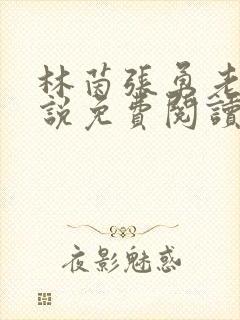 林茵張勇老
說免費閱讀
夜影魅惑